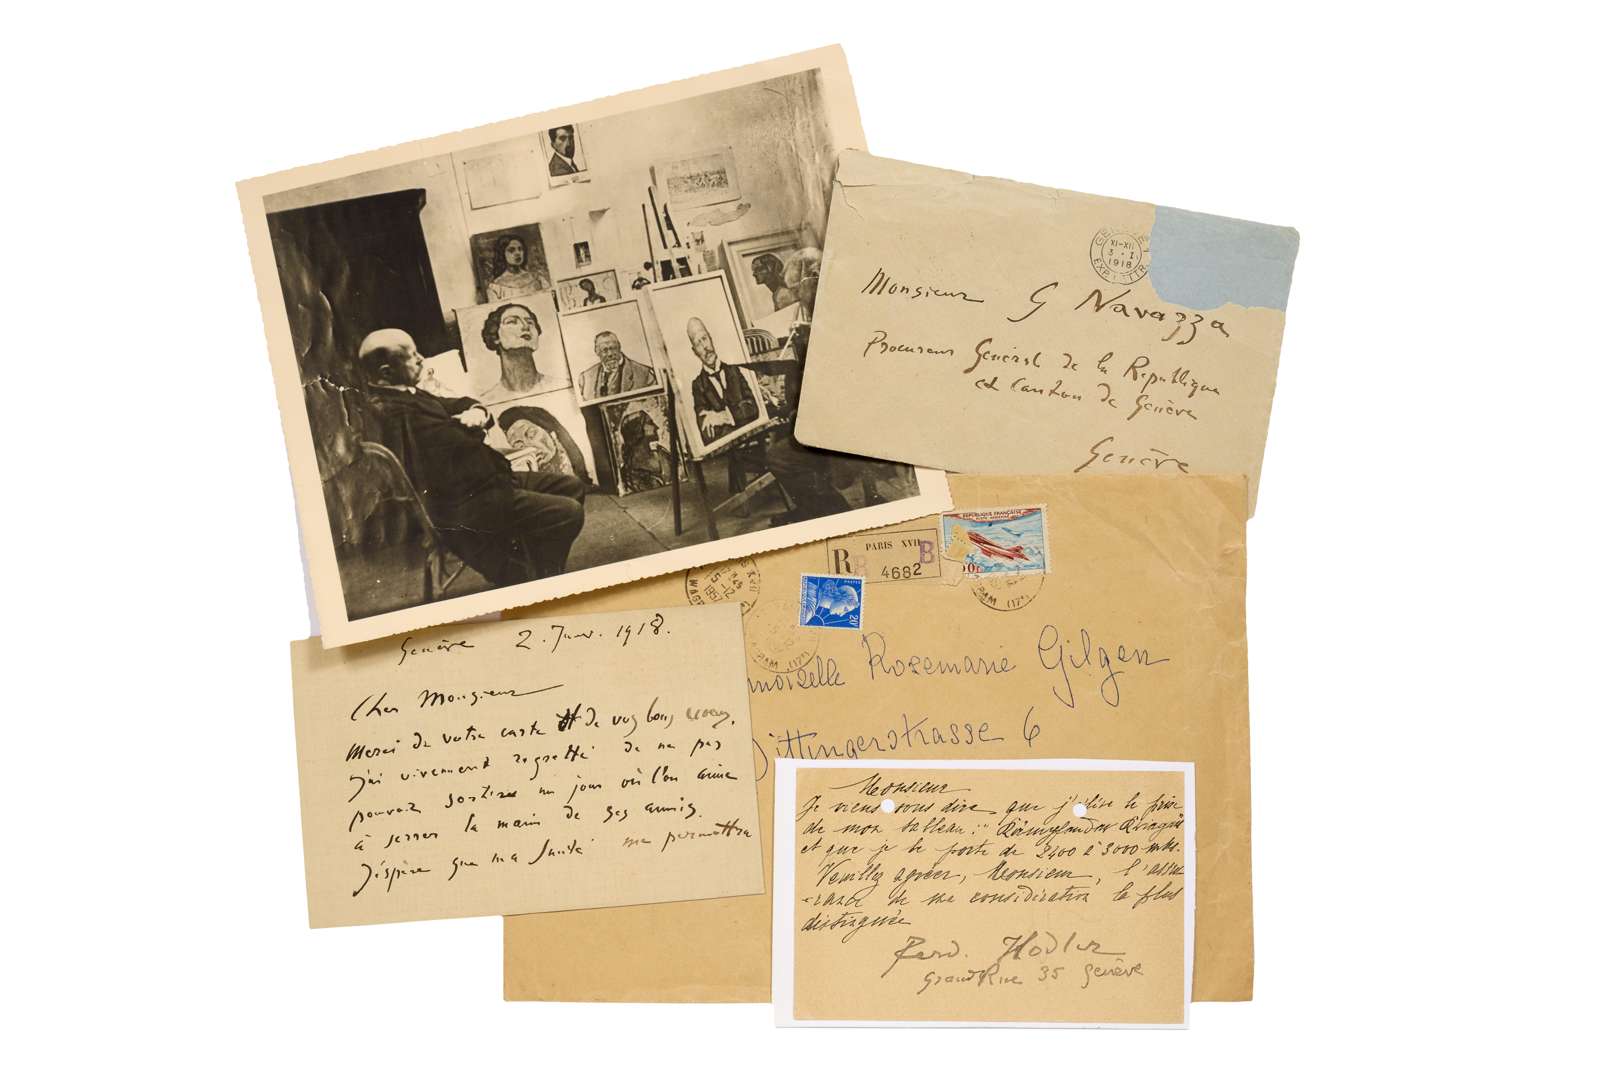 GENÈVE 1
XI-XII
3 · I
1918
EXP. LETTR.
Monsieur G Navazza
Procureur Général de la République
et Canton de Genève
Genève
REPUBLIQUE FRANÇAISE
POSTE AERIENNE
PARIS XVII
R
B
4682
POSTES
20F
PAM (17e)
PAM (17e)
moiselle Rosemarie Gilgen
Dittingerstrasse 6
Genève 2. Janv. 1918.
Cher Monsieur
Merci de votre carte et de vos bons voeux.
J'ai vivement regretté de ne pas
pouvoir sortir un jour où l'on aime
à serrer la main de ses amis.
J'éspère que ma santé me permettra
Monsieur
Je viens vous dire que j'élève le prix
de mon tableau:
et que je le porte de 2400 à 3000 mks.
Veuillez agréer, Monsieur, l'assu
-rance de ma considération la plus
distinguée
Ferd. Hodler
Grand Rue 35 Genève